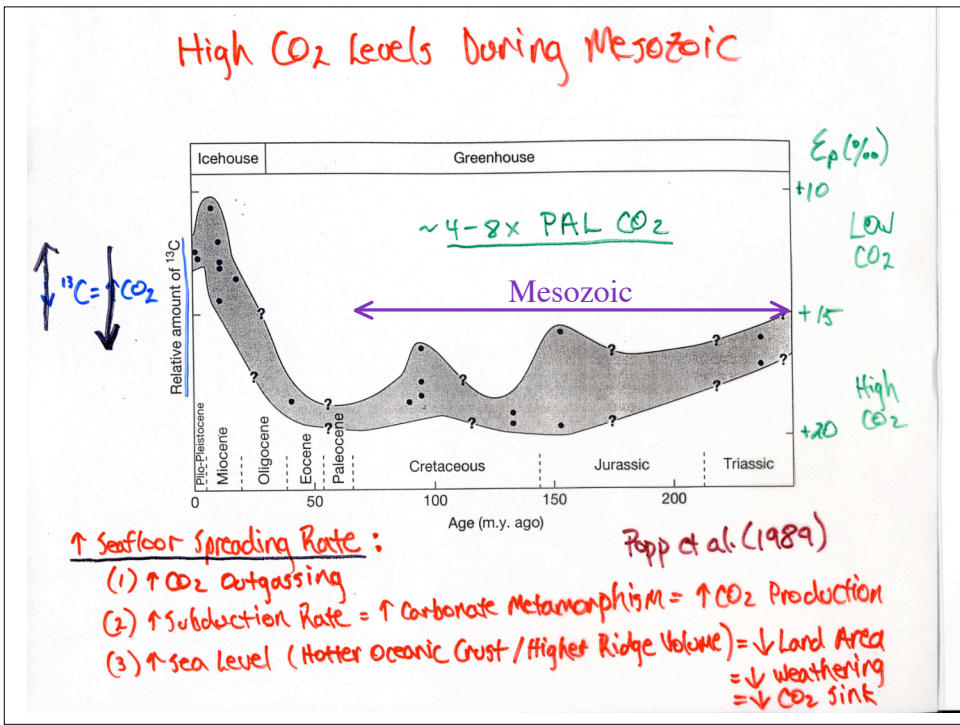 High CO2 Levels During Mesozoic
Icehouse
Greenhouse
Ɛp (‰)
+10
~ 4-8x PAL CO2
LOW
CO2
Relative amount of ¹³C
¹³C = ↑CO2
Mesozoic
+15
?
?
?
?
?
?
?
?
?
?
?
?
?
High
CO2
+20
Plio-Pleistocene
Miocene
Oligocene
Eocene
Paleocene
Cretaceous
Jurassic
Triassic
0
50
100
150
200
Age (m.y. ago)
↑ Seafloor Spreading Rate :
Popp et al. (1989)
(1) ↑ CO2 Outgassing
(2) ↑ Subduction Rate = ↑ Carbonate Metamorphism = ↑ CO2 Production
(3) ↑ Sea Level (Hotter Oceanic Crust / Higher Ridge Volume) = ↓ Land Area
= ↓ weathering
= ↓ CO2 Sink